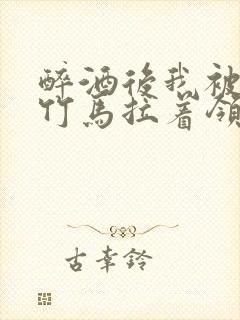 醉酒後我被
竹馬拉着領
古幸鈴